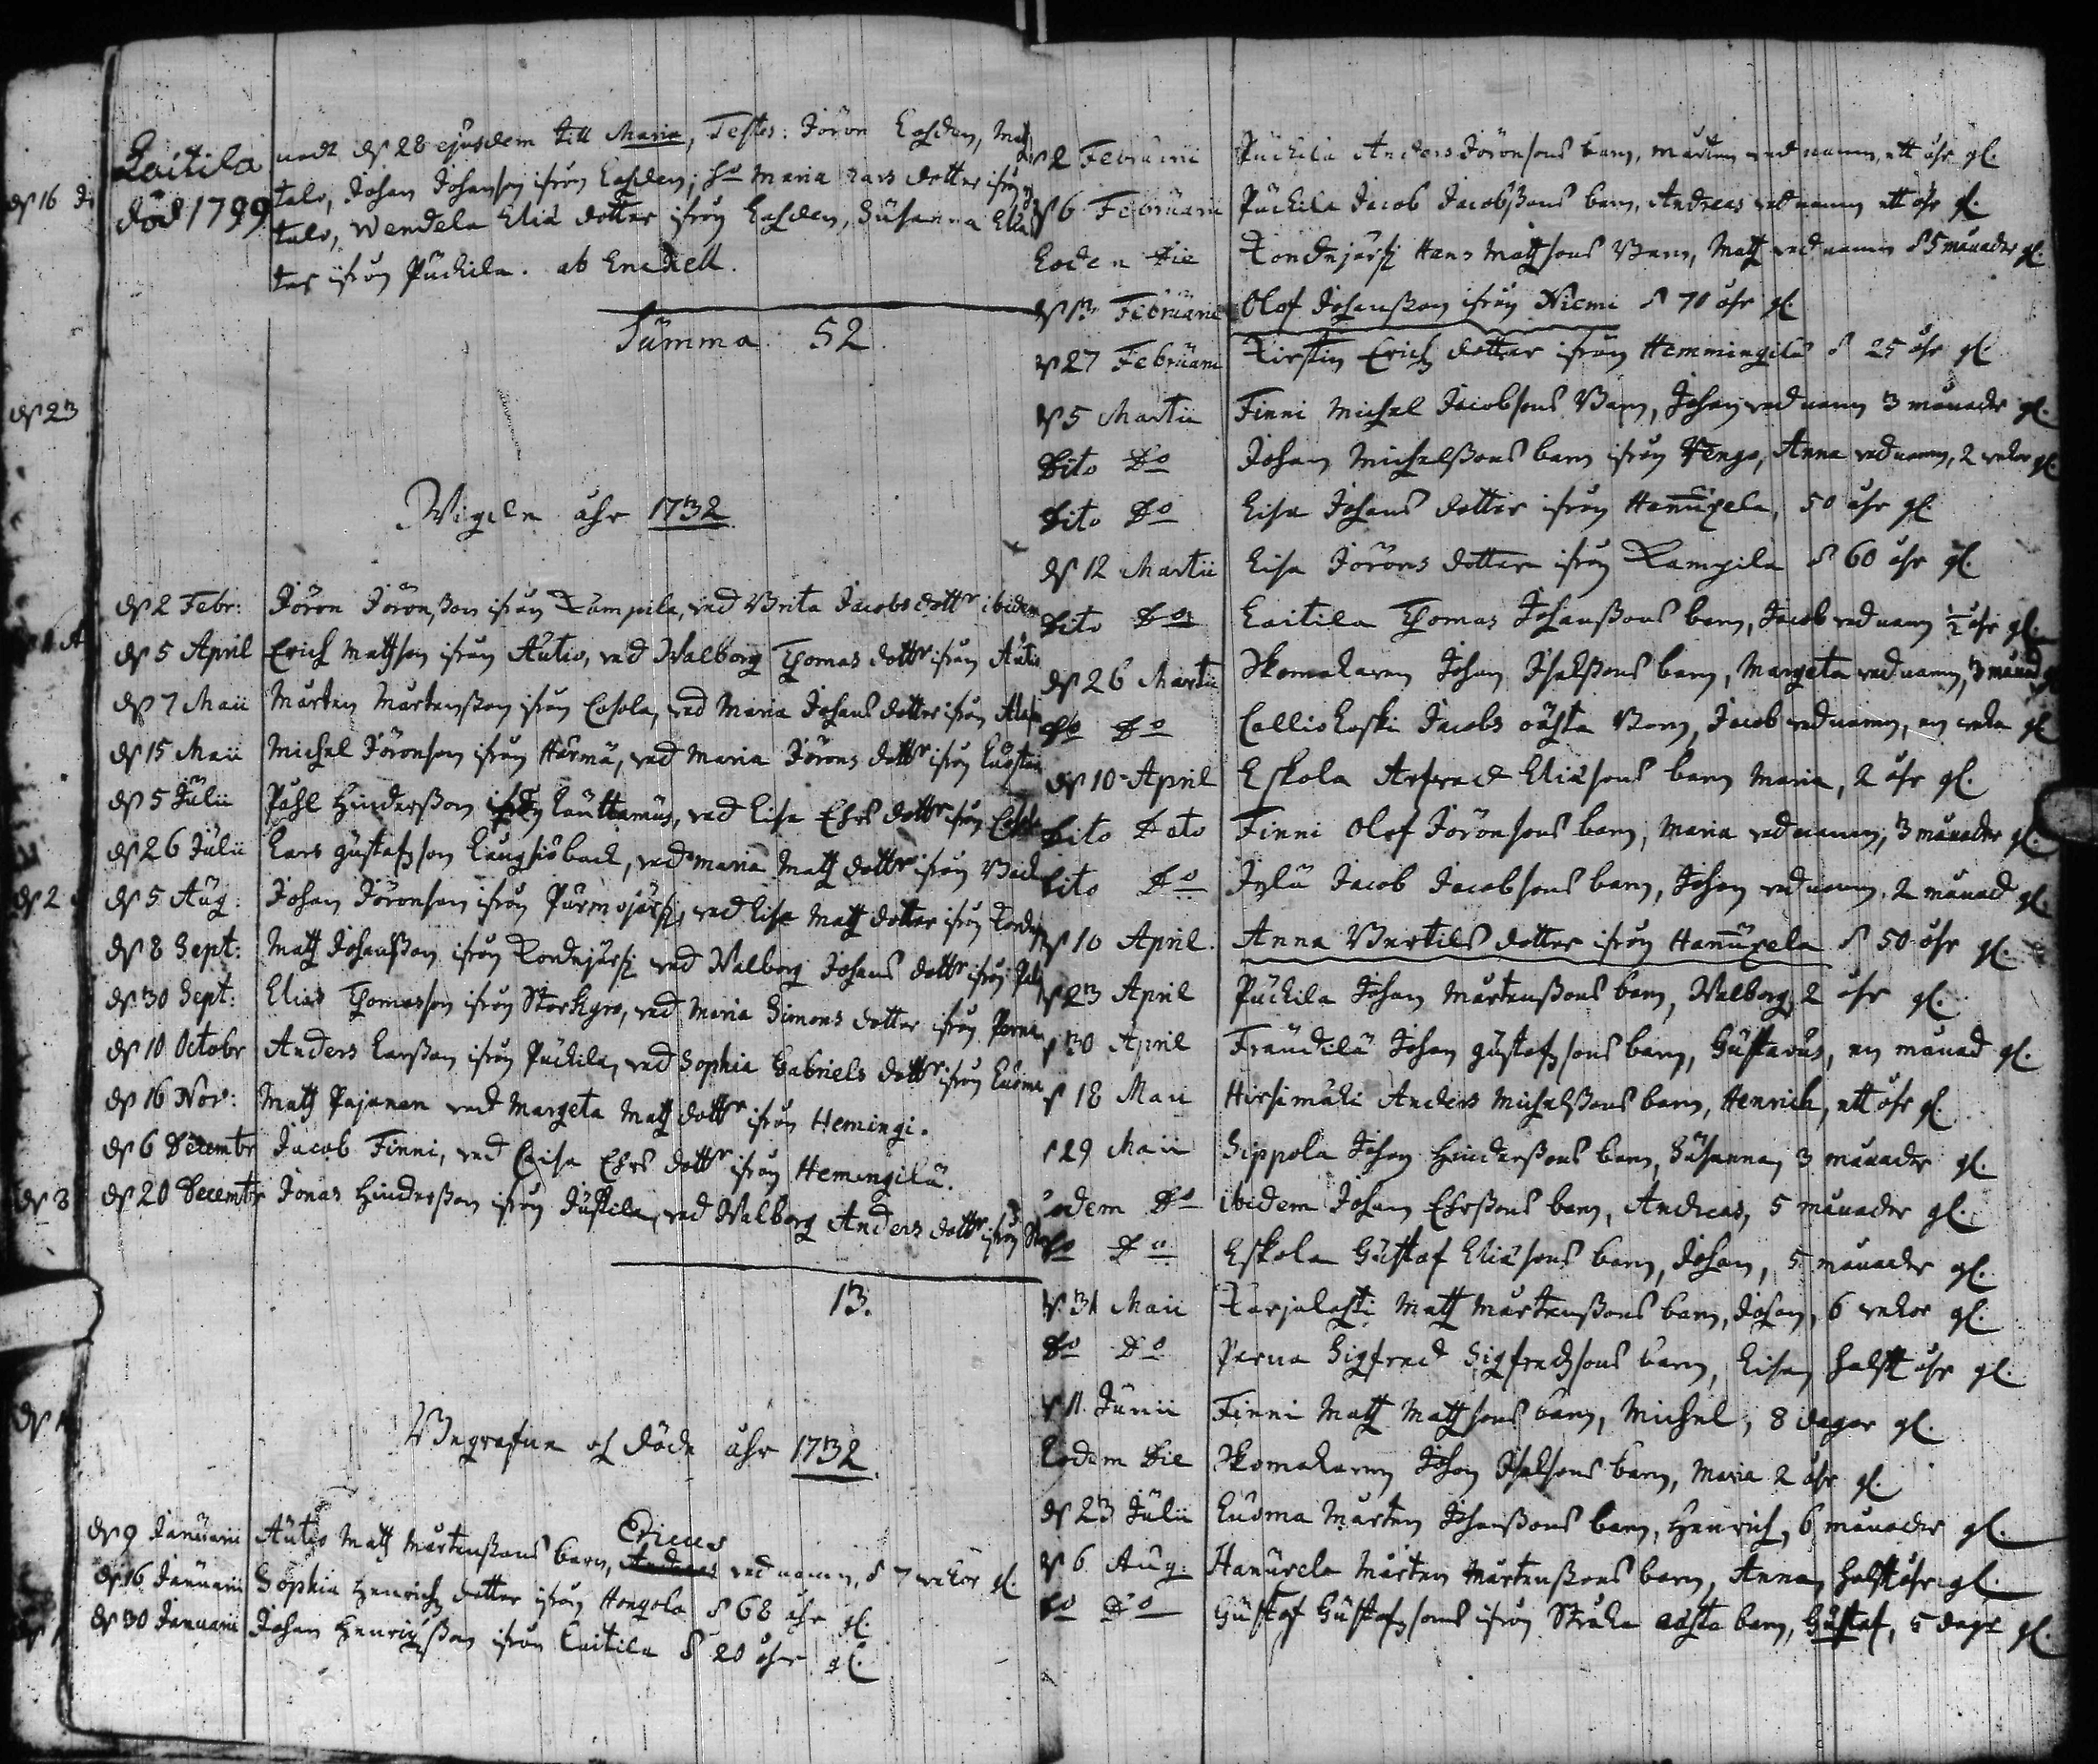 Laitila
död 1799
nadt d. 28 ejusdem till Maria, Testes: Jören Lahden, Matz
talo, Johan Johanson ifrån Lahden; ho Maria Lars dotter ifrån
talo, Wendela Eliæ dotter ifrån Lahden, Susanna Eliæ
ter ifrån Puckila. ab Enckell.
Summa 52.
Wigde åhr 1732
d. 2 Febr: Jören Jörenßon ifrån Kampila, med Brita Jacobs dottr ibidem
d. 5 April Erich Mattsson ifrån Autio, med Walborg Thomas dottr ifrån Autio
d. 7 Maii Mårten Mårtenßon ifrån Cahola, med Maria Johans dotter ifrån
d. 15 Maii Michel Jörenson ifrån Härmä, med Maria Jörens dottr ifrån
d. 5 Julii Påhl Hindersson ifrån Lauttamus, med Lisa Ehrs dottr ifrån
d. 26 Julii Lars Gustafsson Laughisback, med Maria Matz dottr ifrån Back
d. 5 Aug: Johan Jörenson ifrån Purmojärfi, med Lisa Matz dotter ifrån
d. 8 Sept: Matz Johanßon ifrån Kordejärfi med Walborg Johans dottr ifrån
d. 30 Sept: Elias Thomasson ifrån Storkyro, med Maria Simons dotter ifrån Perna
d. 10 Octobr Anders Larßon ifrån Puckila, med Sophia Gabriels dottr ifrån Luoma
d. 16 Nov: Matz Pajanen med Margeta Matz dottr ifrån Hemingi.
d. 6 Decembr Jacob Finni, med Caisa Ehrs dottr ifrån Hemingilä.
d. 20 Decembr Jonas Hindersson ifrån Jussila, med Walborg Anders dottr ifrån
13.
Begrafne och döde åhr 1732.
Ericus
d. 9 Januarii Autio Matz Mårtenßons barn, Andreas wed namn, 7 wekor gl.
d. 16 Januarii Sophia Henrichs dotter ifrån Hongola 68 åhr gl.
d. 30 Januarii Johan Henrichßon ifrån Laitila 20 åhr gl.
d. 2 Februarii Puckila Anders Jörensons barn, Mårten wed namn, ett åhr gl.
d. 6 Februarii Puckila Jacob Jacobßons barn, Andreas wed namn ett åhr gl.
Eodem Die Kordejärfi Hans Matzsons Barn, Matz wed namn 5 månader gl.
d. 13 Februarii Olof Johanßon ifrån Niemi 70 åhr gl.
d. 27 Februarii Kirstin Erichs dotter ifrån Hemmingilä 25 åhr gl.
d. 5 Martii Finni Michel Jacobsons Barn, Johan wed namn 3 månader gl.
Dito Do Johan Michelßons barn ifrån Hengo, Anna wed namn, 2 wekor gl.
Dito Do Lisa Johans dotter ifrån Hanuxela, 50 åhr gl.
d. 12 Martii Lisa Jörens dotter ifrån Kampila 60 åhr gl.
Dito Do Laitila Thomas Johanßons barn, Jacob wed namn ½ åhr gl.
d. 26 Martii Skomakaren Johan Isakßons barn, Margeta wed namn, 3 månad gl
Do Do Calliokoski Jacobs oächta Barn, Jacob wed namn, en weka gl
d. 10 April Eskola Arfwed Eliæsons barn Maria, 2 åhr gl.
Dito Dato Finni Olof Jörensons barn, Maria wed namn, 3 månader gl.
Dito Do Jylä Jacob Jacobsons barn, Johan wed namn, 2 månad gl.
d. 10 April. Anna Bertils dotter ifrån Hanuxela 50 åhr gl.
d. 23 April Puckila Johan Mårtenßons barn, Walborg 2 åhr gl.
d. 30 April Fräudilä Johan Gustafsons barn, Gustavus, en månad gl.
d. 18 Maii Hirsimäki Anders Michelßons barn, Henrich, ett åhr gl.
d. 29 Maii Sippola Johan Hinderßons barn, Susanna, 3 månader gl.
Eodem Do ibidem Johan Ehrßons barn, Andreas, 5 månader gl.
Do Do Eskola Gustaf Eliæsons barn, Johan, 5 månader gl.
d. 31 Maii Karjalahti Matz Mårtenßons barn, Johan, 6 wekor gl.
Do Do Perna Sigfred Sigfredsons barn, Lisa, halft åhr gl.
d. 11. Junii Finni Matz Matzsons barn, Michel, 8 dagar gl.
Eodem Die Skomakaren Johan Isaksons barn, Maria 2 åhr gl.
d. 23 Julii Luoma Mårten Johanßons barn, Henrich, 6 månader gl.
d. 6 Aug. Hanuxela Mårten Mårtenßons barn, Anna, halft åhr gl.
Do Do Gustaf Gustafsons ifrån Stråka ächta barn, Gustaf, 5 dagr gl.